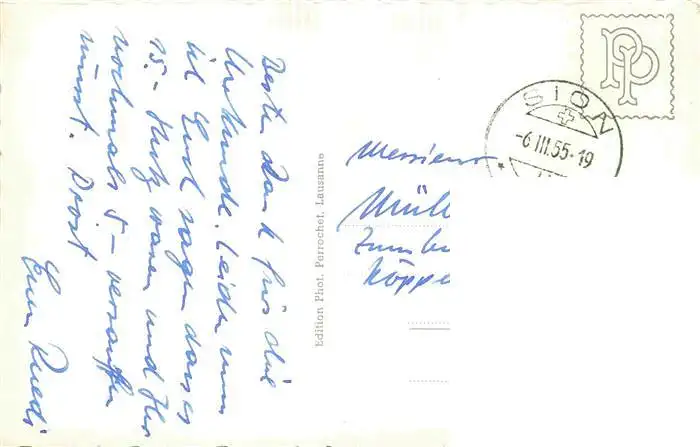 Besten Dank für die
Urkunde. Leider muss
ich Euch sagen dass es
15.- Stutz waren und Ihr
nochmals 5.- versaufen
müsst. Prost
Euer Ruedi
Edition Phot. Perrochet, Lausanne
PP
SION
-6.III.55-19
Messieurs
Müll
Köppe